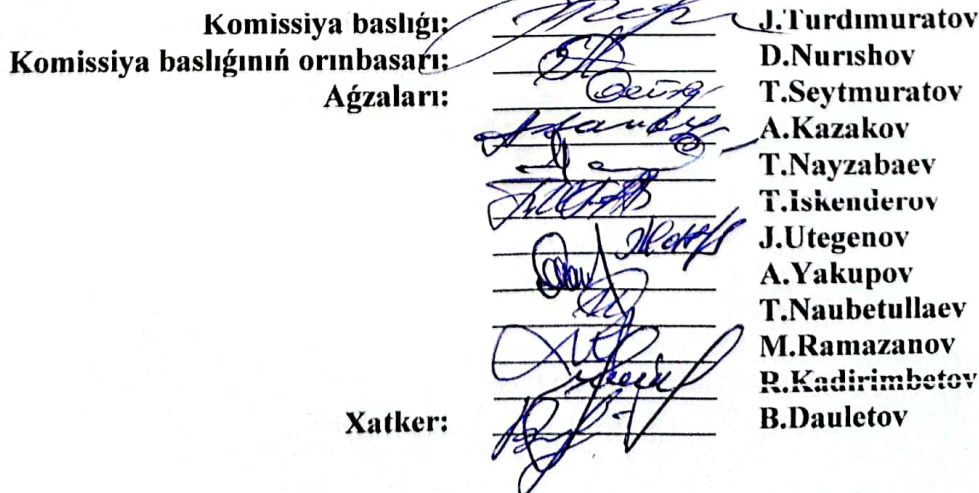 Komissiya baslıǵı: J.Turdımuratov
Komissiya baslıǵınıń orınbasarı: D.Nurıshov
Aǵzaları: T.Seytmuratov
A.Kazakov
T.Nayzabaev
T.Iskenderov
J.Utegenov
A.Yakupov
T.Naubetullaev
M.Ramazanov
R.Kadirimbetov
Xatker: B.Dauletov